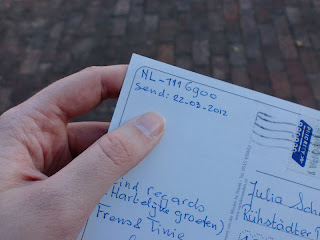 NL-1116900
send: 22-03-2012
ind regards
(Hartelijke groeten)
Frans &
Julia
Ruhstädter